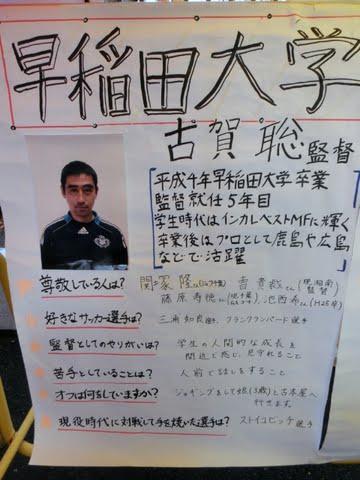 早稲田大学
古賀 聡 監督
平成4年早稲田大学卒業
監督就任5年目
学生時代はインカレベストMFに輝く
卒業後はプロとして鹿島や広島
などで活躍
尊敬している人は?
関塚 隆さん 曺 貴裁さん(現湘南監督)
藤原 寿徳さん 池西 希さん(H25卒)
好きなサッカー選手は?
三浦知良選手、フランクランパード選手
監督としてのやりがいは?
学生の人間的な成長を
間近で感じ、見守れること
苦手としていることは?
人前で話しをすること
オフは何をしていますか?
ジョギングをして娘(3歳)と古本屋へ
行きます。
現役時代に対戦して手を焼いた選手は?
ストイコビッチ選手